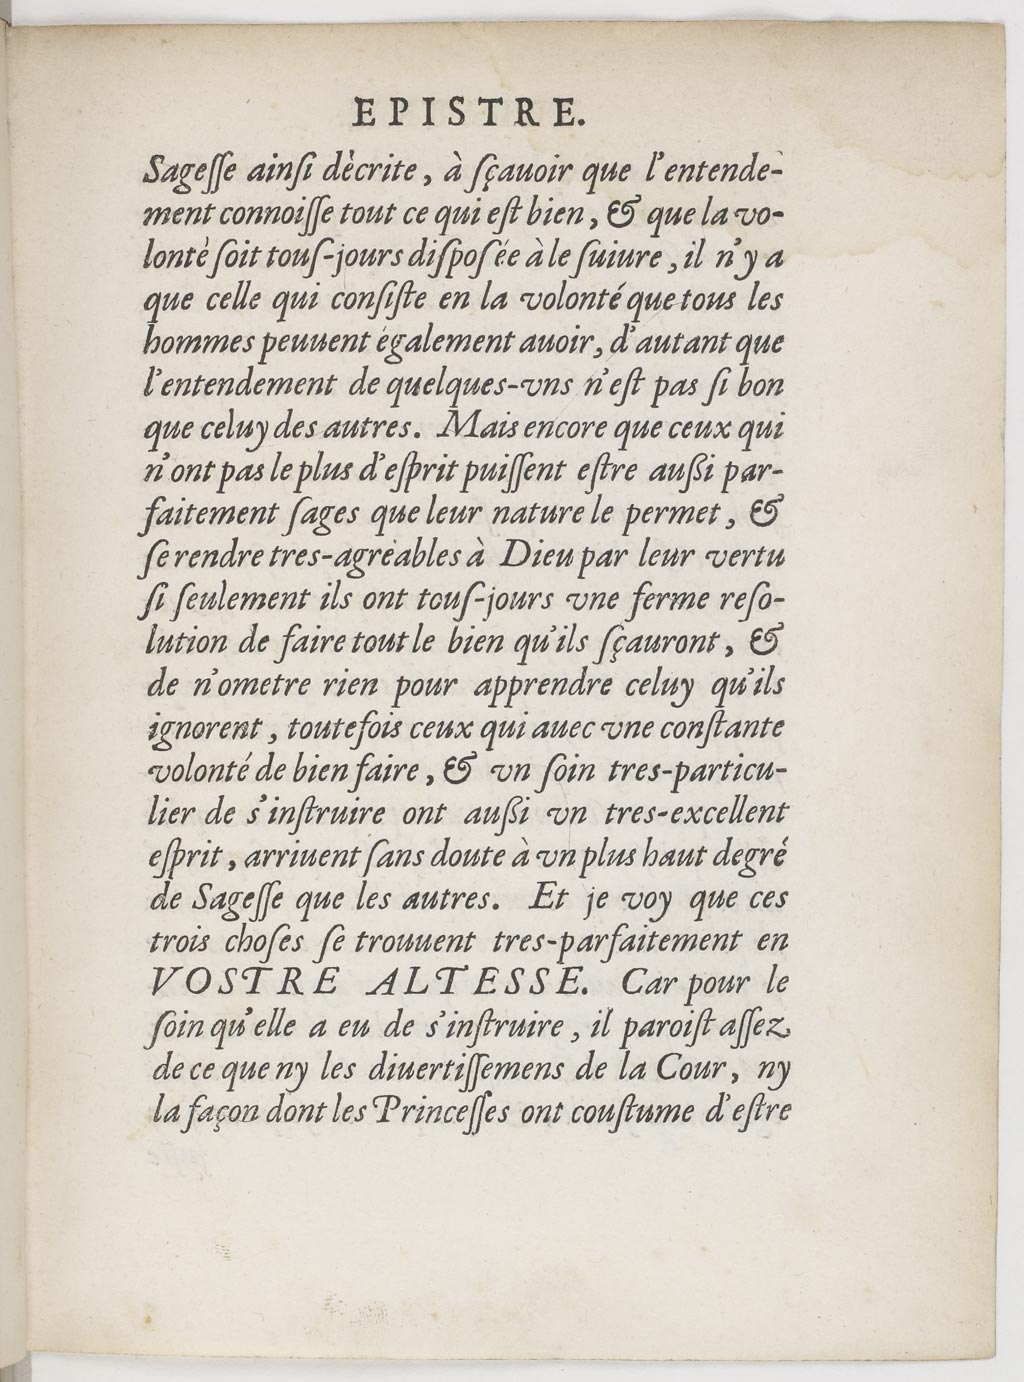 EPISTRE.
Sageſſe ainſi dècrite, à ſçauoir que l'entende-
ment connoiſſe tout ce qui eſt bien, & que la vo-
lonté ſoit touſ-jours diſposée à le ſuiure, il n'y a
que celle qui conſiſte en la volonté que tous les
hommes peuuent également auoir, d'autant que
l'entendement de quelques-vns n'eſt pas ſi bon
que celuy des autres. Mais encore que ceux qui
n'ont pas le plus d'eſprit puiſſent eſtre auſſi par-
faitement ſages que leur nature le permet, &
ſe rendre tres-agreables à Dieu par leur vertu
ſi ſeulement ils ont touſ-jours vne ferme reſo-
lution de faire tout le bien qu'ils ſçauront, &
de n'ometre rien pour apprendre celuy qu'ils
ignorent, toutefois ceux qui auec vne conſtante
volonté de bien faire, & vn ſoin tres-particu-
lier de s'inſtruire ont auſſi vn tres-excellent
eſprit, arriuent ſans doute à vn plus haut degré
de Sageſſe que les autres. Et je voy que ces
trois choſes ſe trouuent tres-parfaitement en
VOSTRE ALTESSE. Car pour le
ſoin qu'elle a eu de s'inſtruire, il paroiſt aſſez
de ce que ny les diuertiſſemens de la Cour, ny
la façon dont les Princeſſes ont couſtume d'eſtre